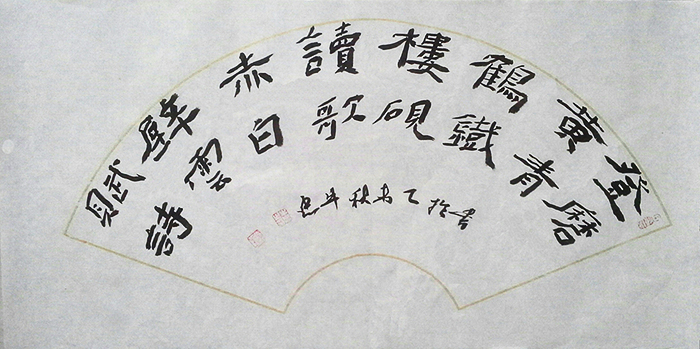 登黄鶴樓讀赤壁賦
磨青鐵硯歌白雲詩
書於乙未秋